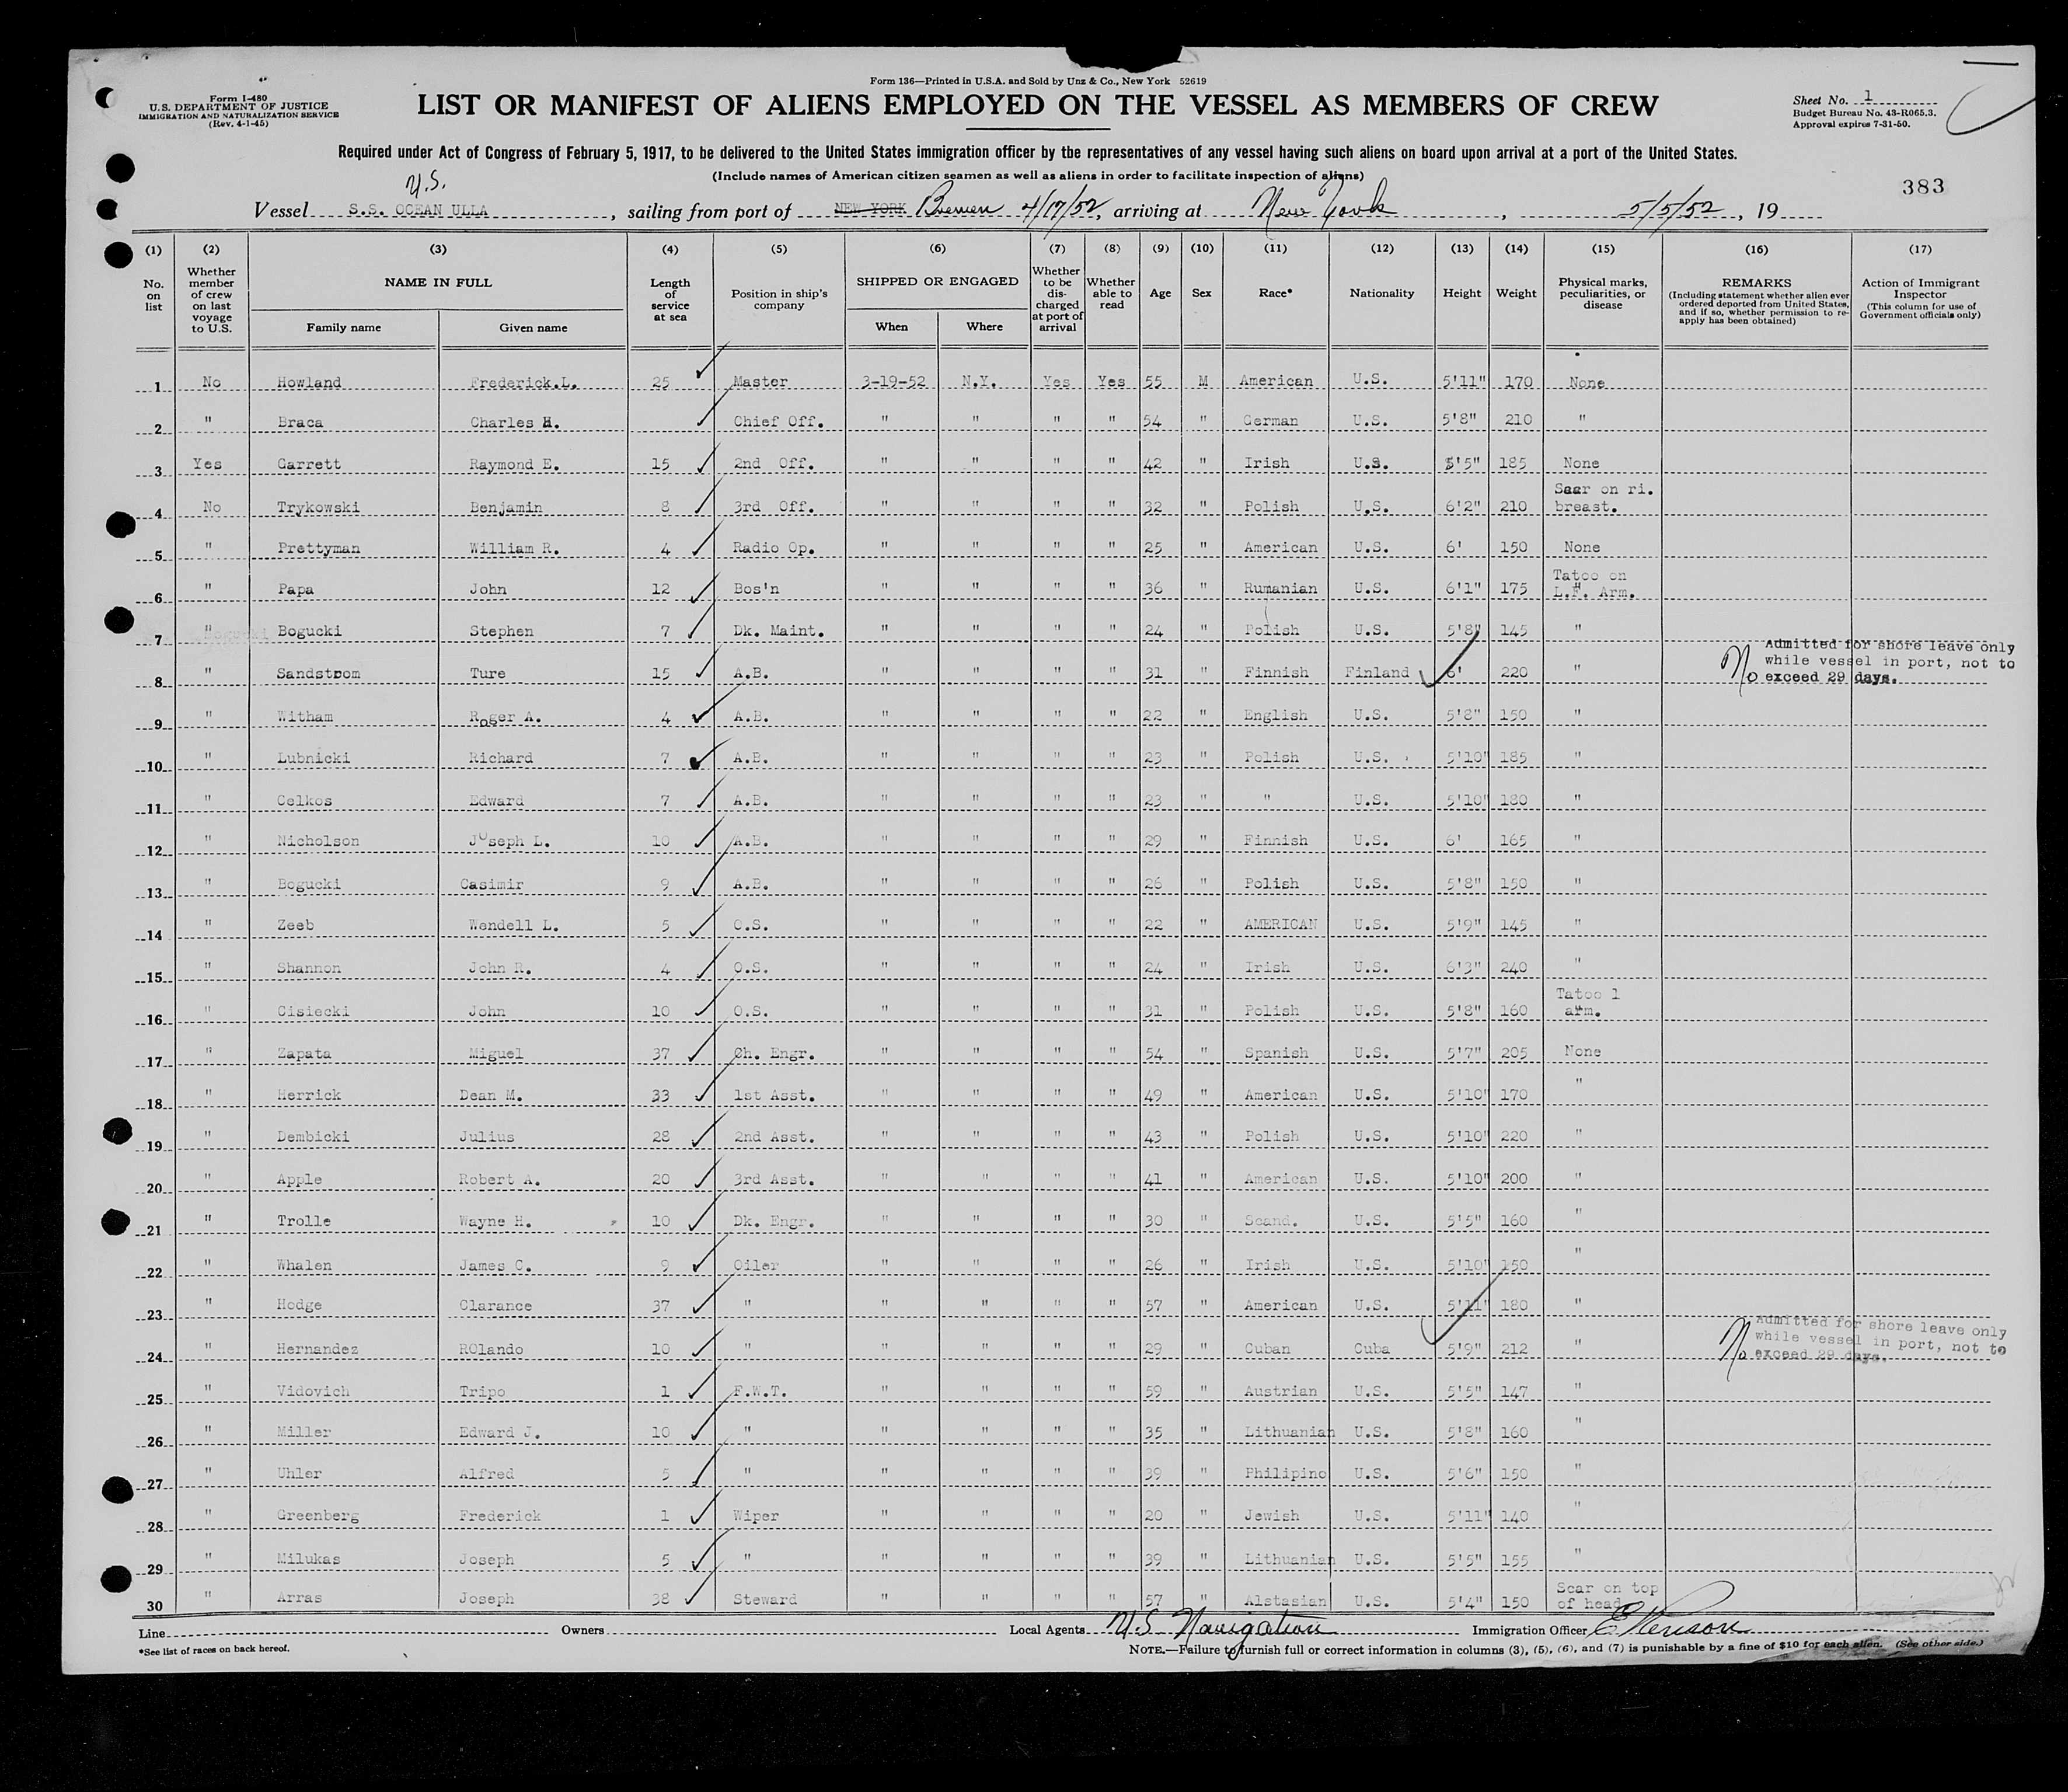 Form 136—Printed in U.S.A. and Sold by Unz & Co., New York 52619
Form I-480
U.S. DEPARTMENT OF JUSTICE
IMMIGRATION AND NATURALIZATION SERVICE
(Rev. 4-1-45)
LIST OR MANIFEST OF ALIENS EMPLOYED ON THE VESSEL AS MEMBERS OF CREW
Sheet No. 1
Budget Bureau No. 43-R065.3.
Approval expires 7-31-50.
Required under Act of Congress of February 5, 1917, to be delivered to the United States immigration officer by the representatives of any vessel having such aliens on board upon arrival at a port of the United States.
(Include names of American citizen seamen as well as aliens in order to facilitate inspection of aliens)
383
U.S.
Vessel S.S. OCEAN ULLA, sailing from port of NEW YORK Bremen 4/17/52, arriving at New York, 5/5/52, 19
(1) (2) (3) (4) (5) (6) (7) (8) (9) (10) (11) (12) (13) (14) (15) (16) (17)
No. on list
Whether member of crew on last voyage to U.S.
NAME IN FULL
Family name Given name
Length of service at sea
Position in ship's company
SHIPPED OR ENGAGED
When Where
Whether to be discharged at port of arrival
Whether able to read
Age
Sex
Race*
Nationality
Height
Weight
Physical marks, peculiarities, or disease
REMARKS
(Including statement whether alien ever ordered deported from United States, and if so, whether permission to reapply has been obtained)
Action of Immigrant Inspector
(This column for use of Government officials only)
1 No Howland Frederick.L. 25 Master 3-19-52 N.Y. Yes Yes 55 M American U.S. 5'11" 170 None
2 " Braca Charles H. Chief Off. " " " " 54 " German U.S. 5'8" 210 "
3 Yes Garrett Raymond E. 15 2nd Off. " " " " 42 " Irish U.S. 5'5" 185 None
4 No Trykowski Benjamin 8 3rd Off. " " " " 32 " Polish U.S. 6'2" 210 Scar on ri. breast.
5 " Prettyman William R. 4 Radio Op. " " " " 25 " American U.S. 6' 150 None
6 " Papa John 12 Bos'n " " " " 36 " Rumanian U.S. 6'1" 175 Tatoo on L.F. Arm.
7 " Bogucki Stephen 7 Dk. Maint. " " " " 24 " Polish U.S. 5'8" 145 "
8 " Sandstrom Ture 15 A.B. " " " " 31 " Finnish Finland 6' 220 " No Admitted for shore leave only while vessel in port, not to exceed 29 days.
9 " Witham Roger A. 4 A.B. " " " " 22 " English U.S. 5'8" 150 "
10 " Lubnicki Richard 7 A.B. " " " " 23 " Polish U.S. 5'10" 185 "
11 " Celkos Edward 7 A.B. " " " " 23 " " U.S. 5'10" 180 "
12 " Nicholson Joseph L. 10 A.B. " " " " 29 " Finnish U.S. 6' 165 "
13 " Bogucki Casimir 9 A.B. " " " " 26 " Polish U.S. 5'8" 150 "
14 " Zeeb Wendell L. 5 O.S. " " " " 22 " AMERICAN U.S. 5'9" 145 "
15 " Shannon John R. 4 O.S. " " " " 24 " Irish U.S. 6'3" 240 "
16 " Cisiecki John 10 O.S. " " " " 31 " Polish U.S. 5'8" 160 Tatoo l arm.
17 " Zapata Miguel 37 Ch. Engr. " " " " 54 " Spanish U.S. 5'7" 205 None
18 " Herrick Dean M. 33 1st Asst. " " " " 49 " American U.S. 5'10" 170 "
19 " Dembicki Julius 28 2nd Asst. " " " " 43 " Polish U.S. 5'10" 220 "
20 " Apple Robert A. 20 3rd Asst. " " " " 41 " American U.S. 5'10" 200 "
21 " Trolle Wayne H. 10 Dk. Engr. " " " " 30 " Scand. U.S. 5'5" 160 "
22 " Whalen James C. 9 Oiler " " " " 26 " Irish U.S. 5'10" 150 "
23 " Hodge Clarance 37 " " " " " 57 " American U.S. 5'11" 180 "
24 " Hernandez ROlando 10 " " " " " 29 " Cuban Cuba 5'9" 212 " No Admitted for shore leave only while vessel in port, not to exceed 29 days.
25 " Vidovich Tripo 1 F.W.T. " " " " 59 " Austrian U.S. 5'5" 147 "
26 " Miller Edward J. 10 " " " " " 35 " Lithuanian U.S. 5'8" 160 "
27 " Uhler Alfred 5 " " " " " 39 " Philipino U.S. 5'6" 150 "
28 " Greenberg Frederick 1 Wiper " " " " 20 " Jewish U.S. 5'11" 140 "
29 " Milukas Joseph 5 " " " " " 39 " Lithuanian U.S. 5'5" 155 "
30 " Arras Joseph 38 Steward " " " " 57 " Alstasian U.S. 5'4" 150 Scar on top of head
Line Owners Local Agents U.S. Navigation Immigration Officer
*See list of races on back hereof.
NOTE.—Failure to furnish full or correct information in columns (3), (5), (6), and (7) is punishable by a fine of $10 for each alien. (See other side.)